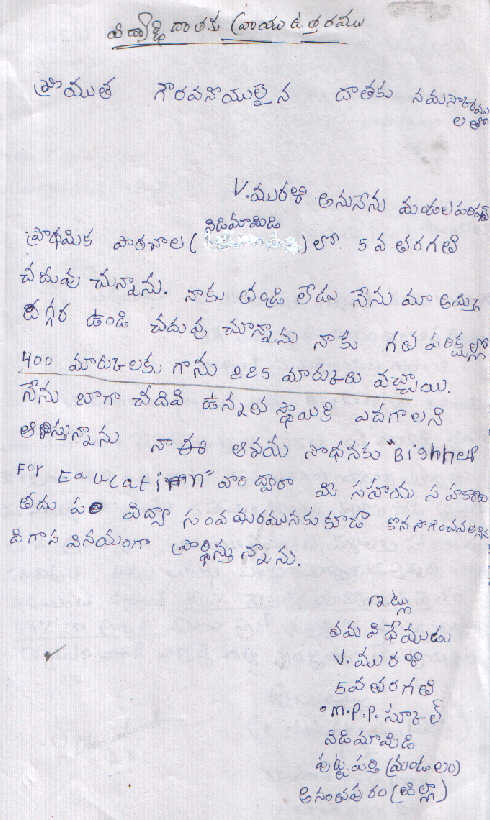 విద్యార్థి దాతకు వ్రాయు ఉత్తరము
శ్రీయుత గౌరవనీయులైన దాతకు నమస్కారము
లతో
V.మురళి అనునేను మండల పరిషత్
నిడిమామిడి
ప్రాథమిక పాఠశాల ( ) లో 5 వ తరగతి
చదువు చున్నాను. నాకు తండ్రి లేడు నేను మా అమ్మ
దగ్గర ఉండి చదువు చున్నాను నాకు గత పరిక్షల్లో
400 మారుకులకు గాను 285 మారుకులు వచ్చాయి.
నేను బాగా చదివి ఉన్నత స్థాయికి ఎదగాలని
ఆశిస్తున్నాను నా ఈ ఆశయ సాధనకు
For Education" వారి ద్వారా మీ సహాయ సహకారా
విద్యా సంవత్సరమునకు కూడా
డిగా సవినయంగా ప్రార్థిస్తున్నాను.
ఇట్లు
తమ విధేయుడు
V. మురళి
5వ తరగతి
M.P.P. స్కూల్
నిడిమామిడి
పుట్టపర్తి (మండలం)
అనంతపురం (జిల్లా)